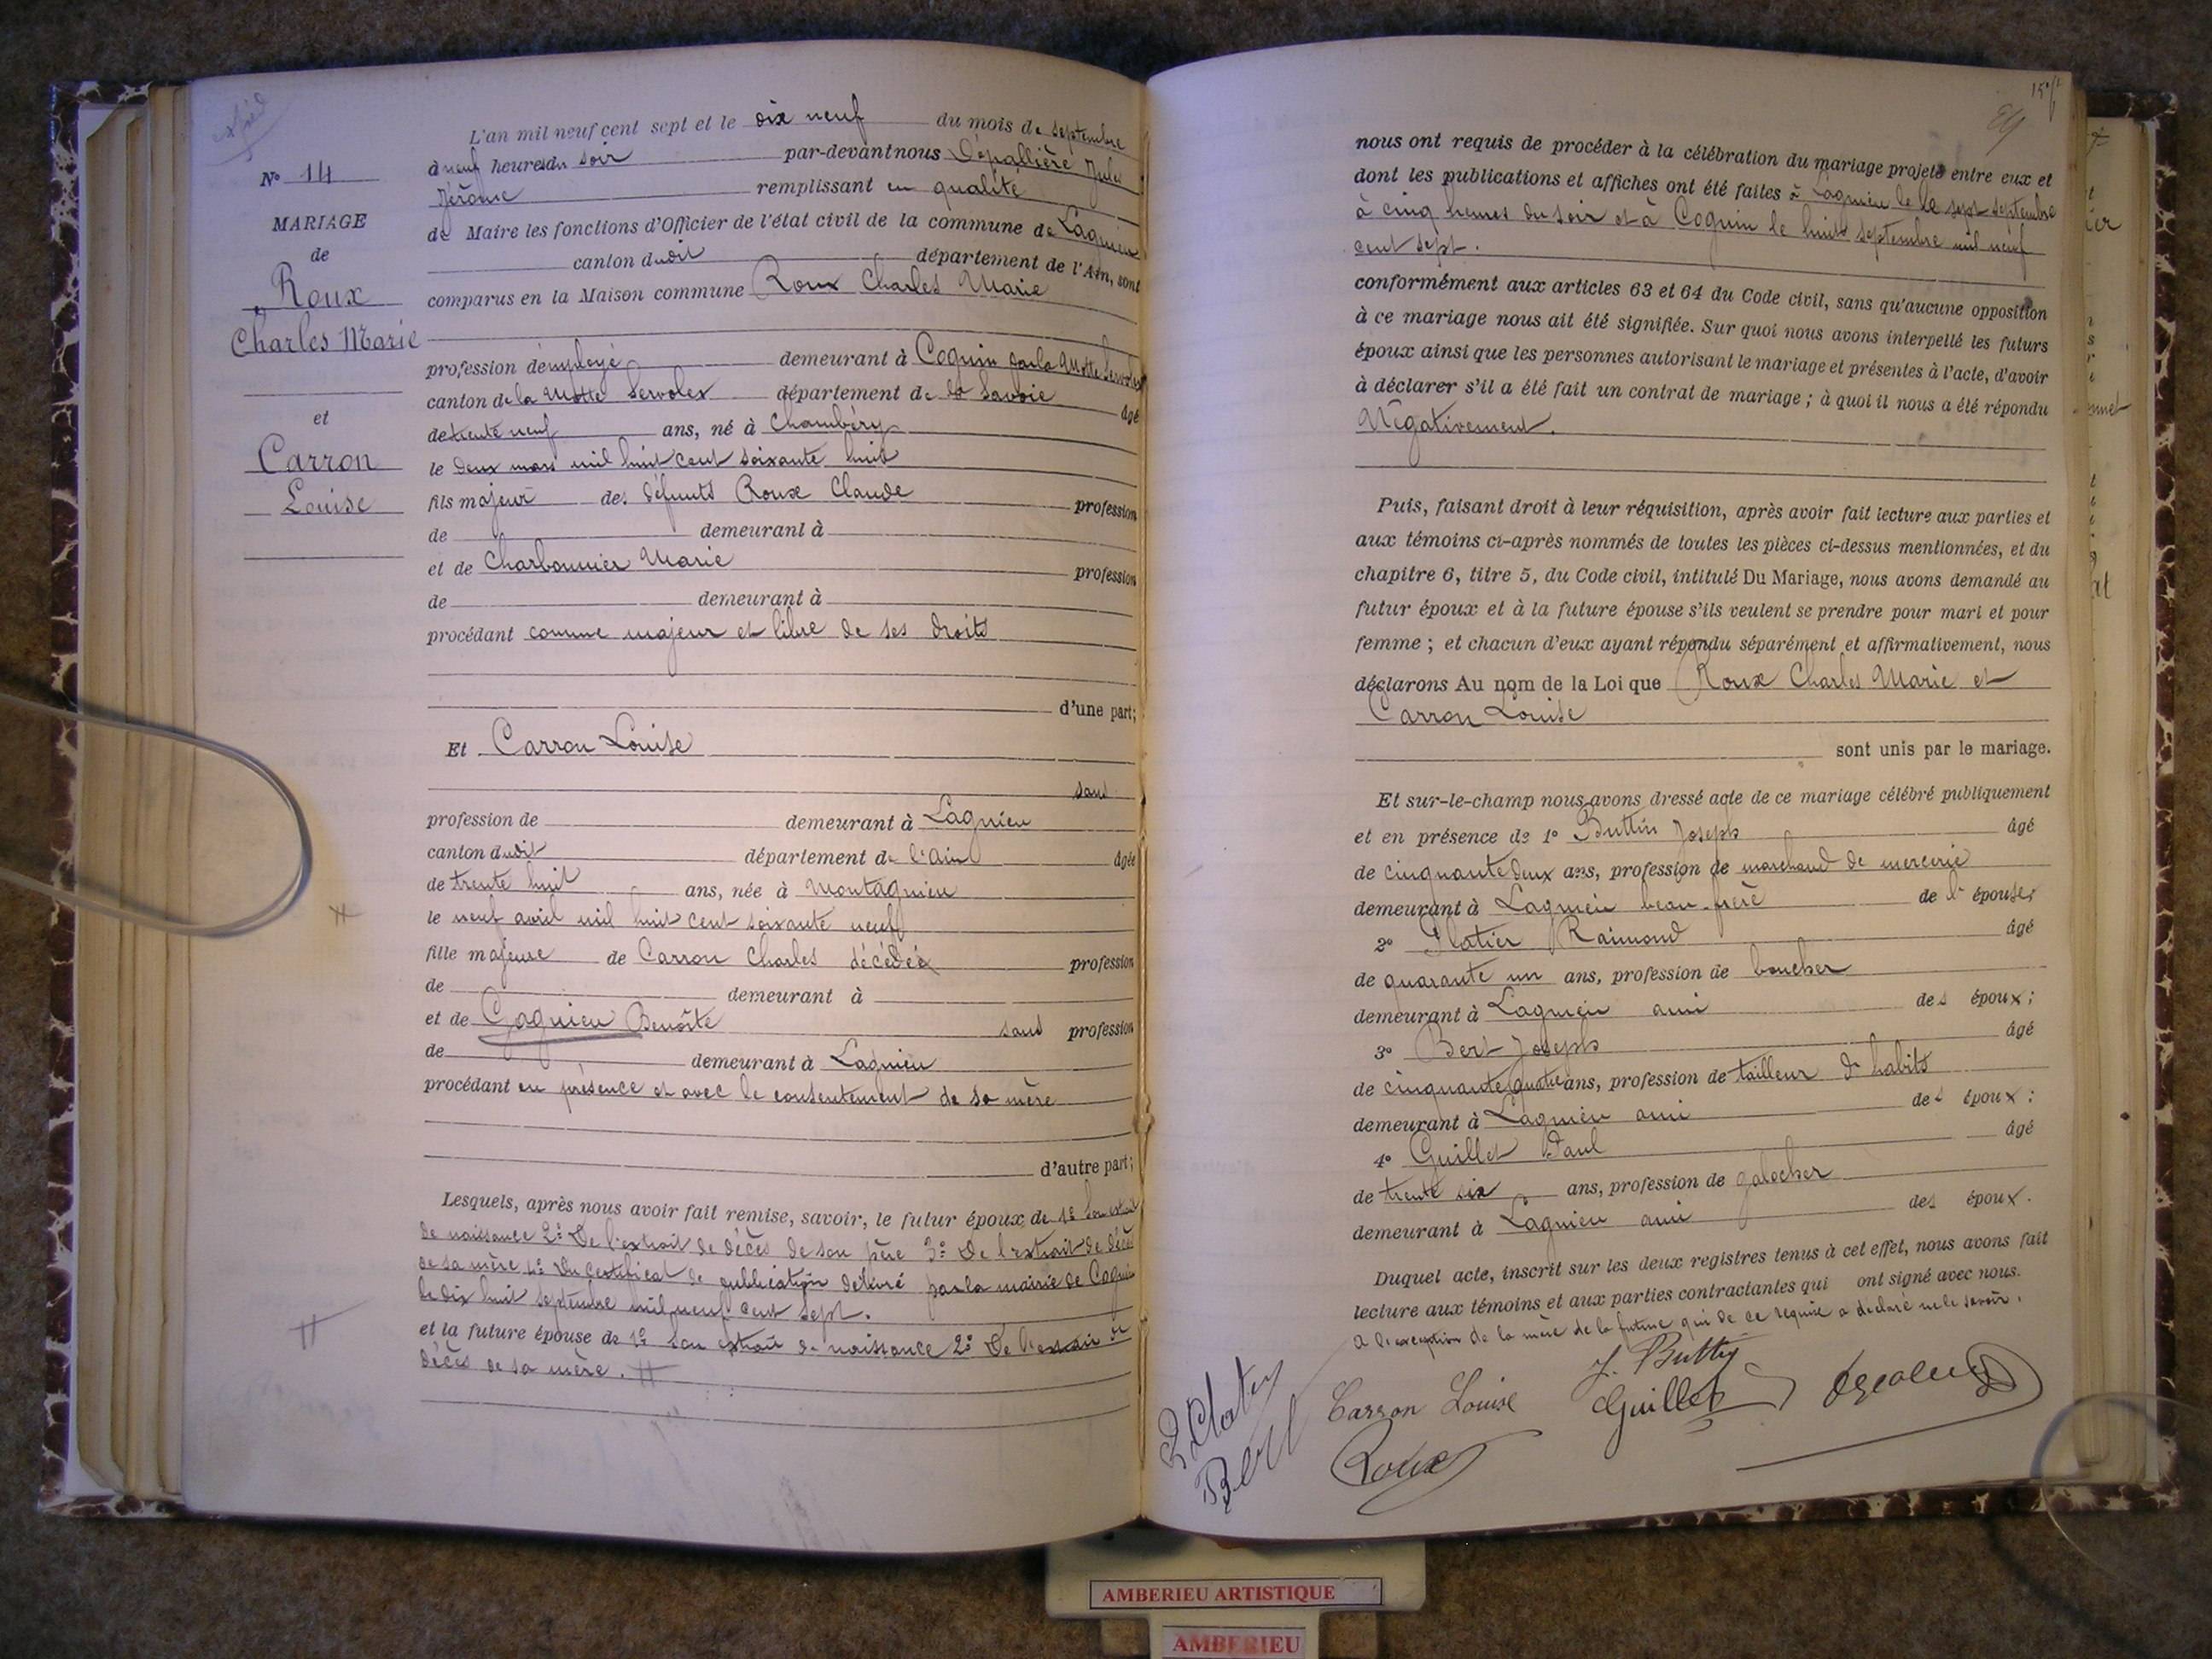 expédié
N° 14
MARIAGE
de
Roux
Charles Marie
et
Carron
Louise
L'an mil neuf cent sept et le dix neuf du mois de septembre
à neuf heures du soir par-devant nous Dépallière Jules
Jérôme remplissant en qualité
de Maire les fonctions d'Officier de l'état civil de la commune de Lagnieu
canton dudit département de l'Ain, sont
comparus en la Maison commune Roux Charles Marie
profession d'employé demeurant à Cognin par la Motte Servolex
canton de la Motte Servolex département de la Savoie âgé
de trente neuf ans, né à Chambéry
le deux mars mil huit cent soixante huit
fils majeur des défunts Roux Claude profession
de demeurant à
et de Charbonnier Marie profession
de demeurant à
procédant comme majeur et libre de ses droits
d'une part;
Et Carron Louise
sans
profession de demeurant à Lagnieu
canton dudit département de l'Ain âgée
de trente huit ans, née à Montagnieu
le neuf avril mil huit cent soixante neuf
fille majeure de Carron Charles décédé profession
de demeurant à
et de Gagnieu Benoîte sans profession
de demeurant à Lagnieu
procédant en présence et avec le consentement de sa mère
d'autre part;
Lesquels, après nous avoir fait remise, savoir, le futur époux de 1° Son extrait
de naissance 2° De l'extrait de décès de son père 3° De l'extrait de décès
de sa mère 4° Du certificat de publication délivré par la mairie de Cognin
le dix huit septembre mil neuf cent sept.
et la future épouse de 1° Son extrait de naissance 2° De l'extrait de
décès de sa mère. #
nous ont requis de procéder à la célébration du mariage projeté entre eux et
dont les publications et affiches ont été faites à Lagnieu le le sept septembre
à cinq heures du soir et à Cognin le huit septembre mil neuf
cent sept.
conformément aux articles 63 et 64 du Code civil, sans qu'aucune opposition
à ce mariage nous ait été signifiée. Sur quoi nous avons interpellé les futurs
époux ainsi que les personnes autorisant le mariage et présentes à l'acte, d'avoir
à déclarer s'il a été fait un contrat de mariage; à quoi il nous a été répondu
Négativement.
Puis, faisant droit à leur réquisition, après avoir fait lecture aux parties et
aux témoins ci-après nommés de toutes les pièces ci-dessus mentionnées, et du
chapitre 6, titre 5, du Code civil, intitulé Du Mariage, nous avons demandé au
futur époux et à la future épouse s'ils veulent se prendre pour mari et pour
femme; et chacun d'eux ayant répondu séparément et affirmativement, nous
déclarons Au nom de la Loi que Roux Charles Marie et
Carron Louise
sont unis par le mariage.
Et sur-le-champ nous avons dressé acte de ce mariage célébré publiquement
et en présence de 1° Buttin Joseph âgé
de cinquante deux ans, profession de marchand de mercerie
demeurant à Lagnieu beau-frère de l'épouse;
2° Platier Raimond âgé
de quarante un ans, profession de boucher
demeurant à Lagnieu ami des époux;
3° Bert Joseph âgé
de cinquante quatre ans, profession de tailleur d'habits
demeurant à Lagnieu ami des époux;
4° Guillet Paul âgé
de trente six ans, profession de galocher
demeurant à Lagnieu ami des époux.
Duquel acte, inscrit sur les deux registres tenus à cet effet, nous avons fait
lecture aux témoins et aux parties contractantes qui ont signé avec nous.
à l'exception de la mère de la future qui de ce requise a déclaré ne le savoir.
Bert
Carron Louise
J. Buttin
Guillet
Roux
AMBERIEU ARTISTIQUE
AMBERIEU